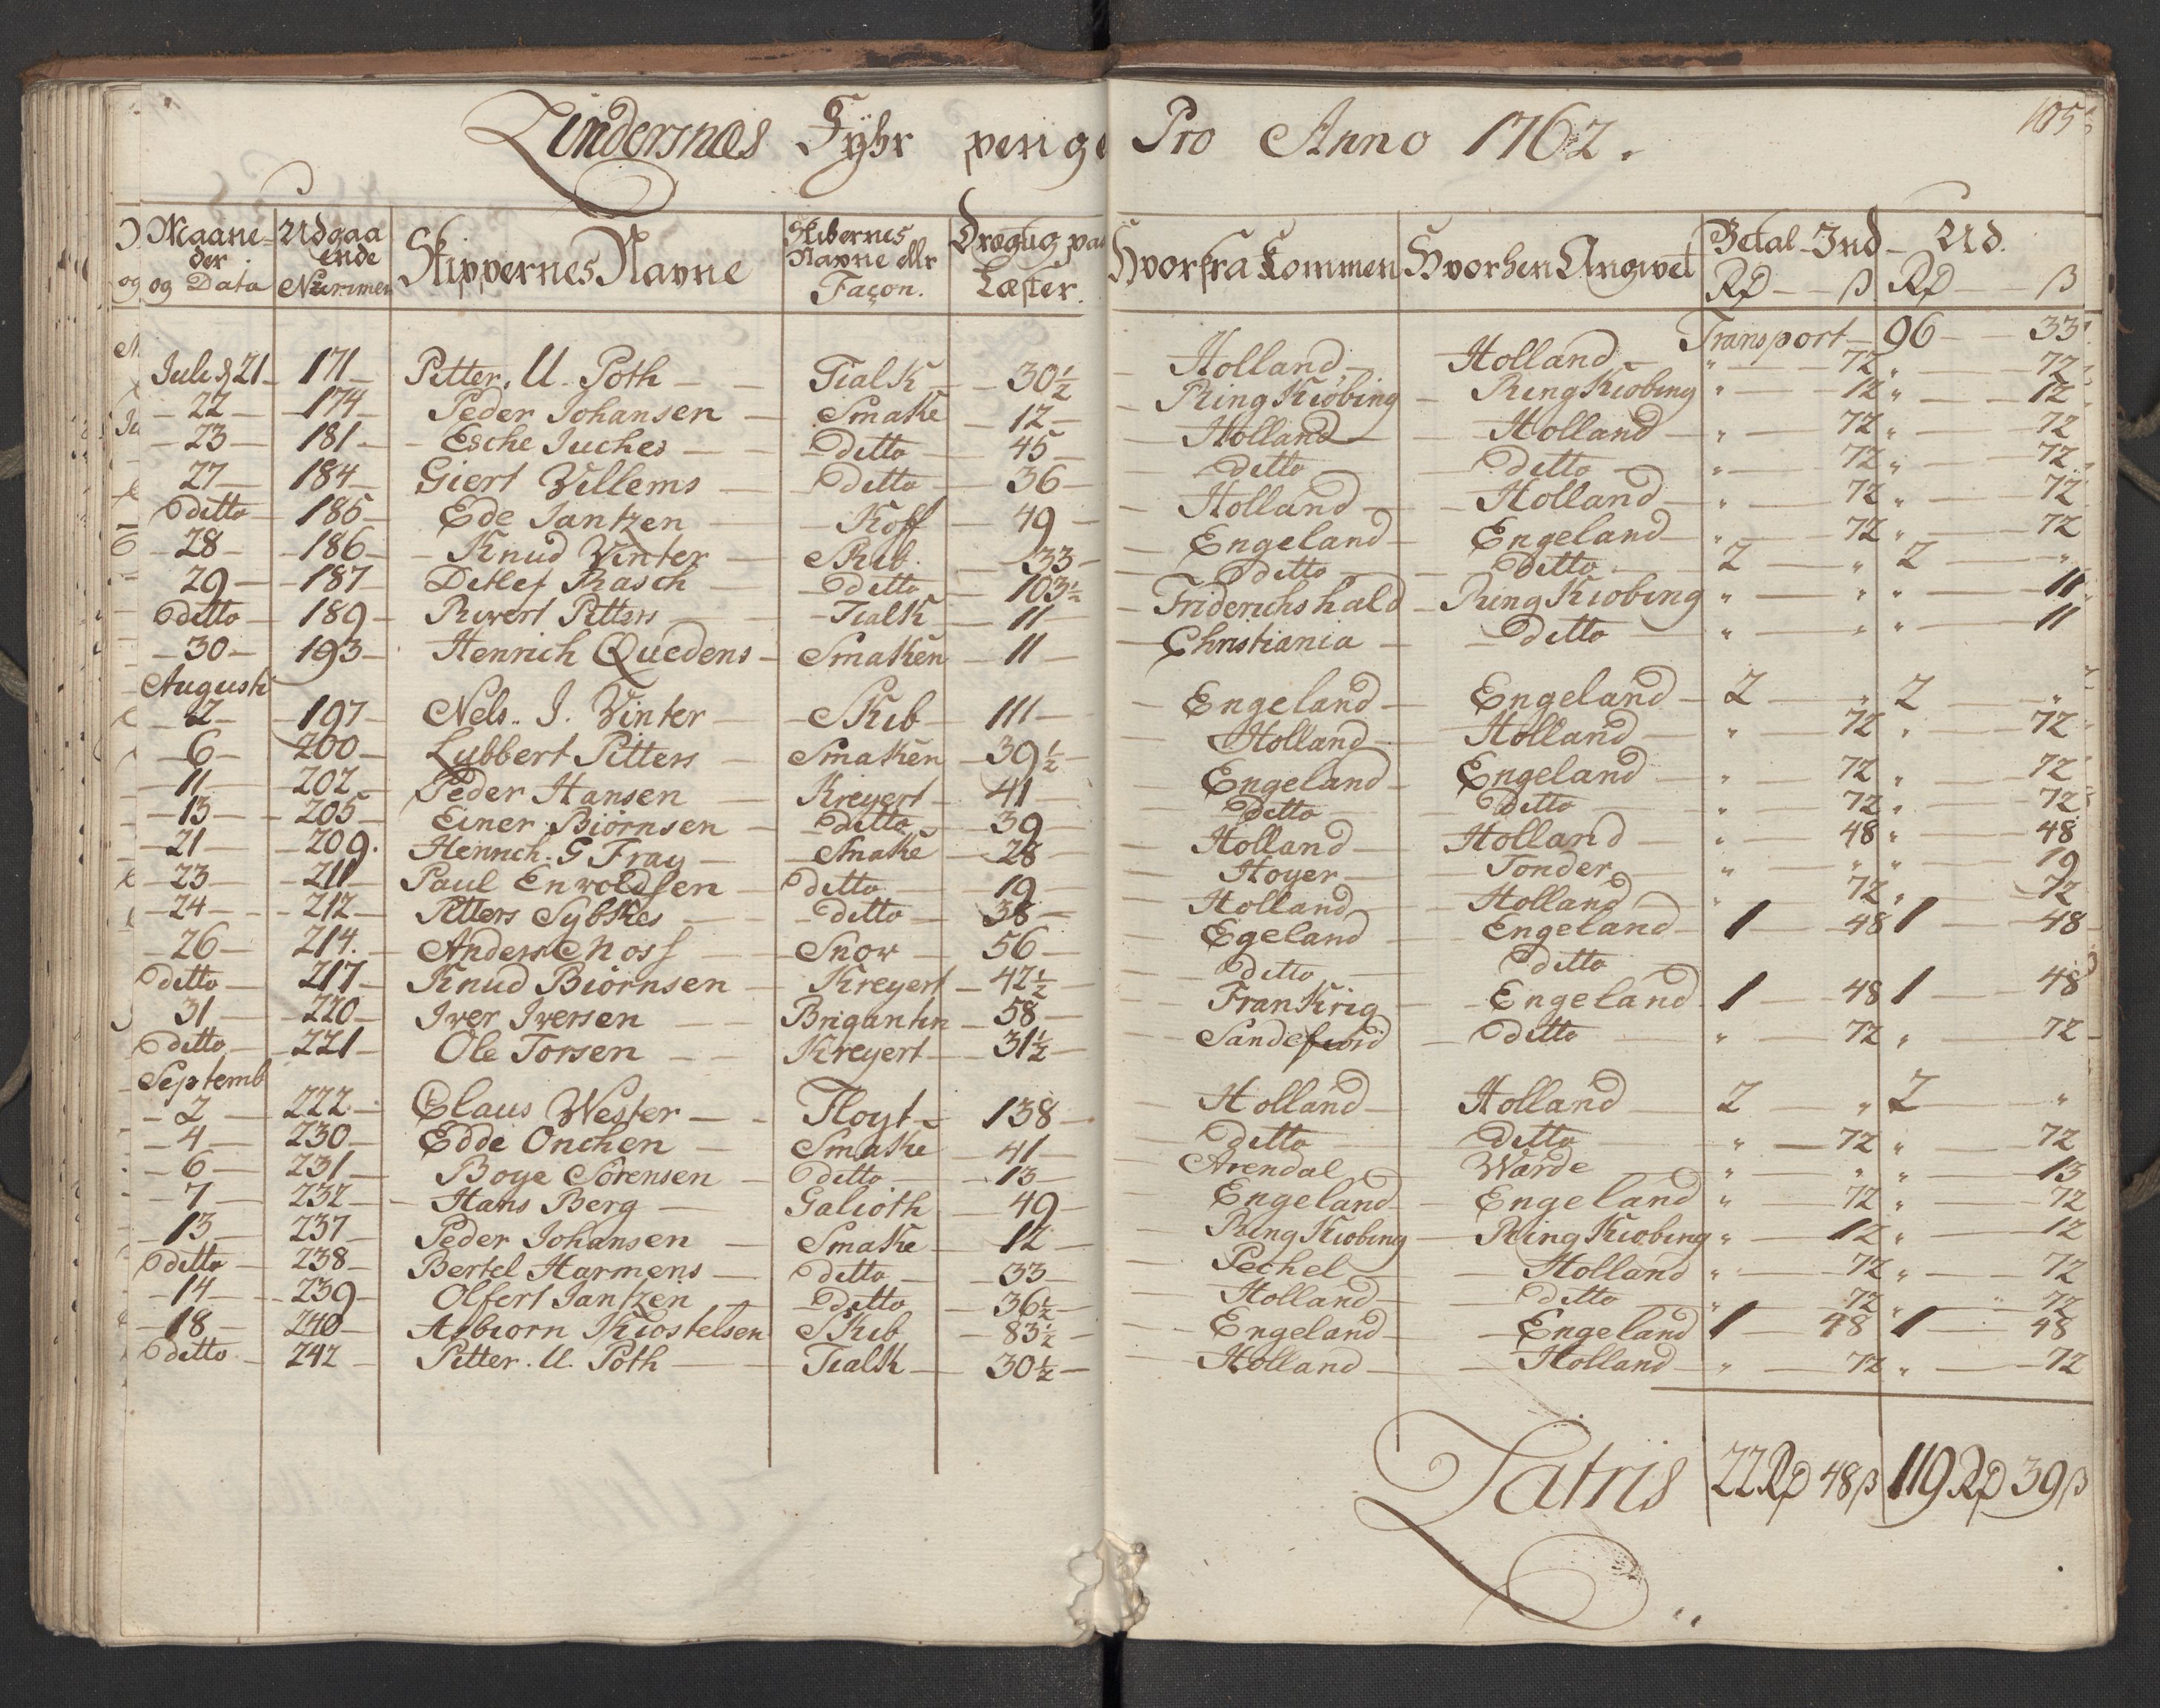 Lindersnæs Fyhr penge Pro Anno 1762.
105
Maaneder og Data | Udgaaende Nummer | Skippernes Navne | Skibernes Navne eller Façon. | Drægtig paa Læster. | Hvorfra Kommen | Hvorhen Angivet | Betal Ind Rd ß | Ud. Rd ß
Transport 96 33
Julij 21 171 Pitter. U. Poth Tialk 30½ Holland Holland " 72 " 72
22 174 Peder Johansen Smake 12 Ring Kiöbing Ring Kiobing " 12 " 12
23 181 Esche Juches Ditto 45 Holland Holland " 72 " 72
27 184 Giert Villems Ditto 36 Ditto Ditto " 72 " 72
Ditto 185 Ede Jantzen Koff 49 Holland Holland " 72 " 72
28 186 Knud Vinter Skib 33 Engeland Engeland " 72 " 72
29 187 Detlef Rasch Ditto 103½ Ditto Ditto 2 " 2 "
Ditto 189 Rivert Pitters Tialk 11 Friderichshald Ring Kiobing " " " 11
30 193 Henrich Quedens Smaken 11 Christiania Ditto " " " 11
Augusti
2 197 Nels. J. Vinter Skib 111 Engeland Engeland 2 " 2 "
6 200 Lubbert Pitters Smaken 39½ Holland Holland " 72 " 72
11 202 Peder Hansen Kreyert 41 Engeland Engeland " 72 " 72
13 205 Einer Biörnsen Ditto 39 Ditto Ditto " 72 " 72
21 209. Henrich. G Fray Smake 28 Holland Holland " 48 " 48
23 211 Paul Envoldsen Ditto 19 Hoyer Tonder " " " 19
24 212 Pitters Sybkes Ditto 38 Holland Holland " 72 " 72
26 214. Anders Moss Snow 56 Egeland Engeland 1 48 1 48
Ditto 217 Knud Biörnsen Kreyert 42½ Ditto Ditto
31 220 Iver Iversen Brigantin 58 Frankrig Engeland 1 48 1 48
Ditto 221 Ole Torsen Kreyert 31½ Sandefiord Ditto " 72 " 72
Septemb
2 222 Claus Wester Floyt 138 Holland Holland 2 " 2 "
4 230 Edde Onchen Smake 41 Ditto Ditto " 72 " 72
6 231 Boye Sörensen Ditto 13 Arendal Warde " " " 13
7 232 Hans Berg Galioth 49 Engeland Engeland " 72 " 72
13 237 Peder Johansen Smake 12 Ring Kiobing Ring Kiobing " 12 " 12
Ditto 238 Bertel Harmens Ditto 33 Pechel Holland " 72 " 72
14 239 Olfert Jantzen Ditto 36½ Holland Ditto " 72 " 72
18 240 Asbiorn Kiostelsen Skib 83½ Engeland Engeland 1 48 1 48
Ditto 242 Pitter. U. Poth Tialk 30½ Holland Holland " 72 " 72
Latris 22 Rd 48 ß 119 Rd 39 ß